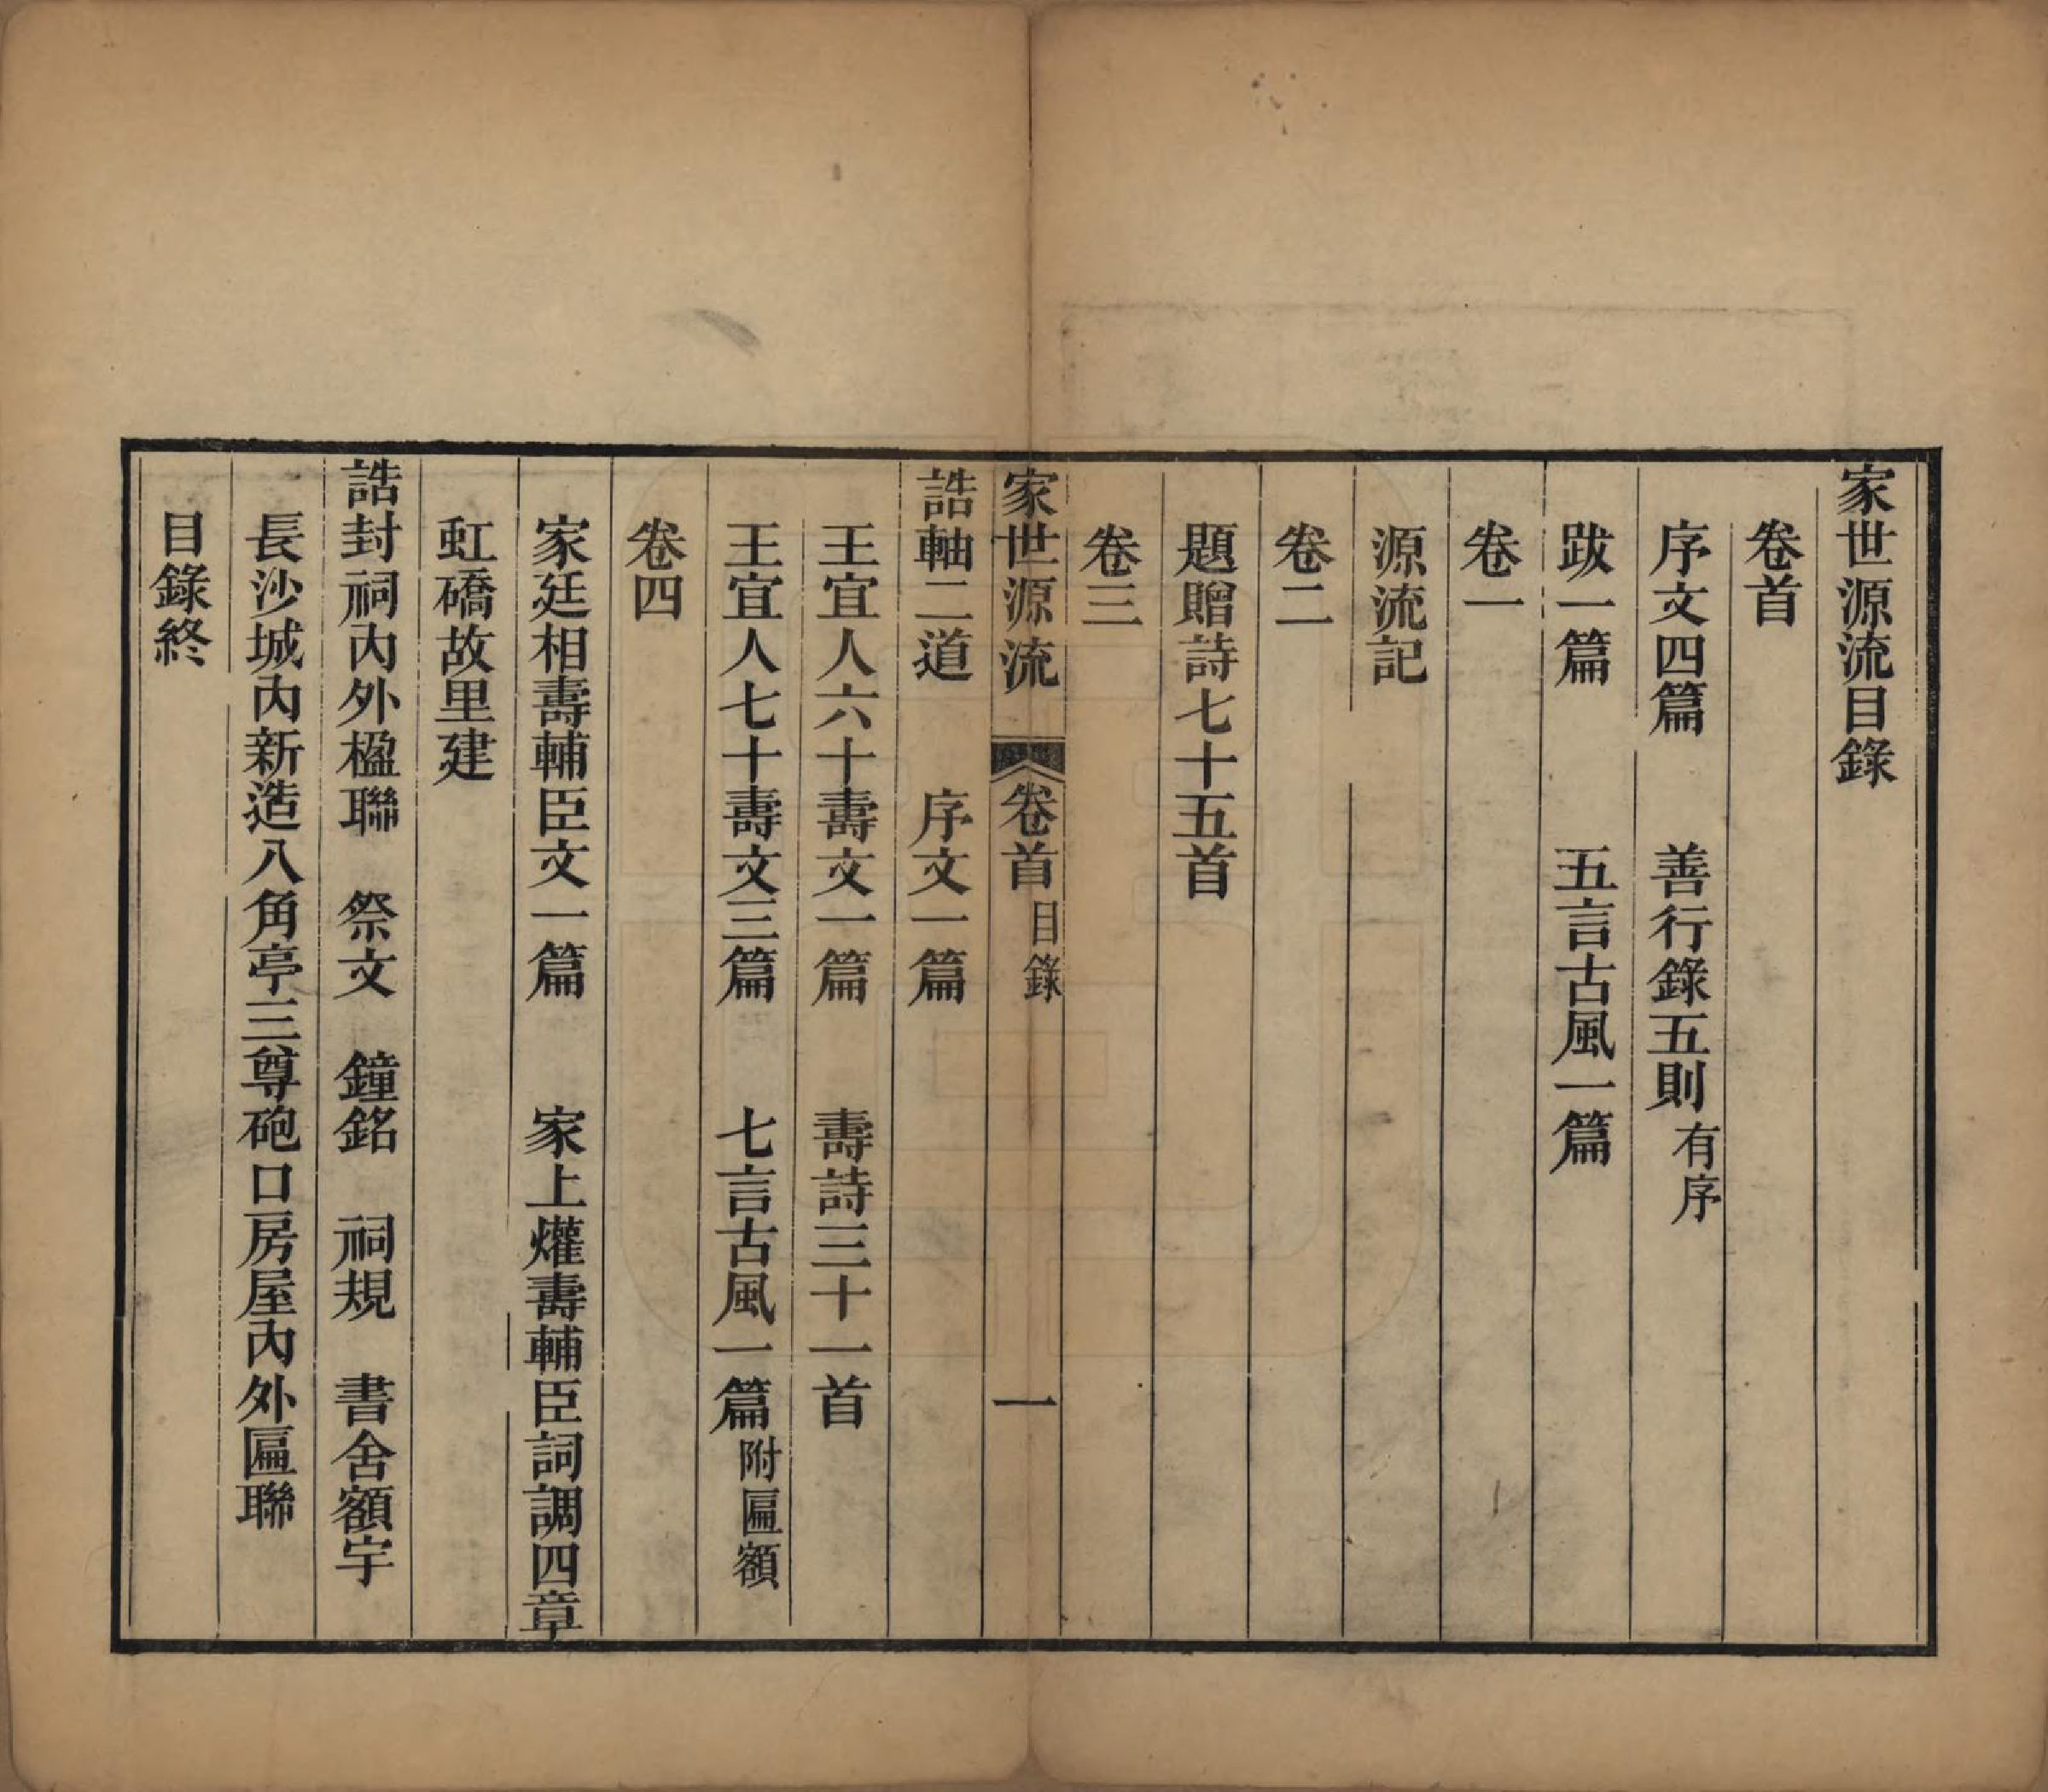 家世源流目錄
卷首
序文四篇　善行錄五則有序
跋一篇　五言古風一篇
卷一
源流記
卷二
題贈詩七十五首
卷三
家世源流　卷首目錄　一
誥軸二道　序文一篇
王宜人六十壽文一篇　壽詩三十一首
王宜人七十壽文三篇　七言古風一篇附匾額
卷四
家廷相壽輔臣文一篇　家上爟壽輔臣詞調四章
虹礄故里建
誥封祠內外楹聯　祭文　鐘銘　祠規　書舍額字
長沙城內新造八角亭三尊砲口房屋內外匾聯
目錄終